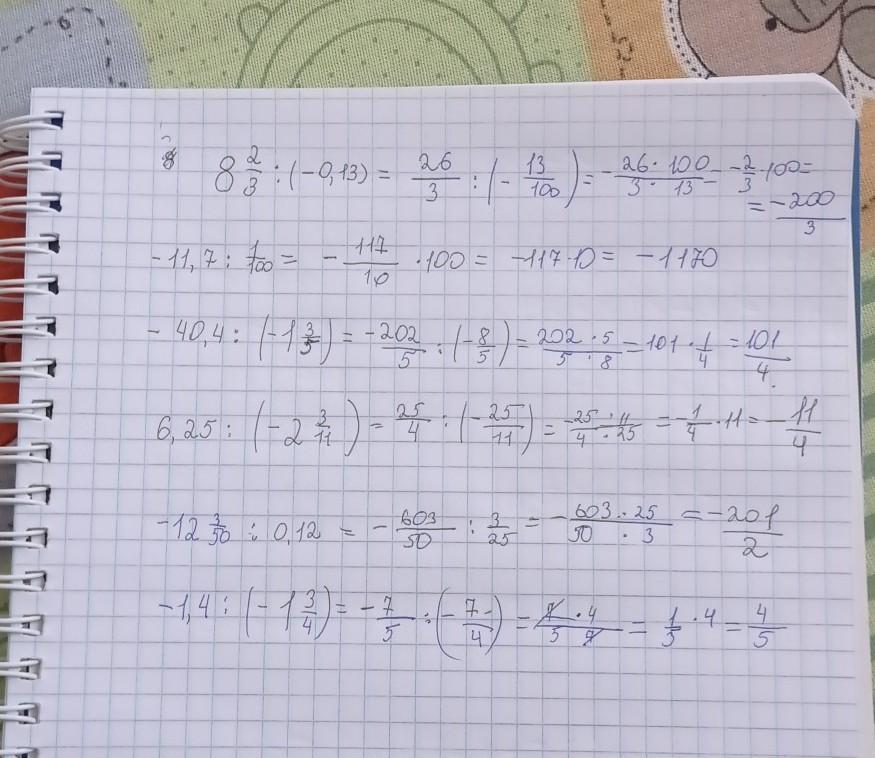 8 2/3 : (-0,13) = 26/3 : (- 13/100) = - 26 · 100 / 3 · 13 = - 2/3 · 100 =
= -200/3
-11,7 : 1/100 = - 117/10 · 100 = -117·10 = -1170
- 40,4 : (-1 3/5) = -202/5 : (- 8/5) = 202 · 5 / 5 · 8 = 101 · 1/4 = 101/4.
6,25 : (-2 3/11) = 25/4 : (- 25/11) = -25 · 11 / 4 · 25 = - 1/4 · 11 = - 11/4
-12 3/50 : 0,12 = - 603/50 : 3/25 = - 603 · 25 / 50 · 3 = -201/2
-1,4 : (-1 3/4) = - 7/5 : (- 7/4) = 7 · 4 / 5 7 = 1/5 · 4 = 4/5